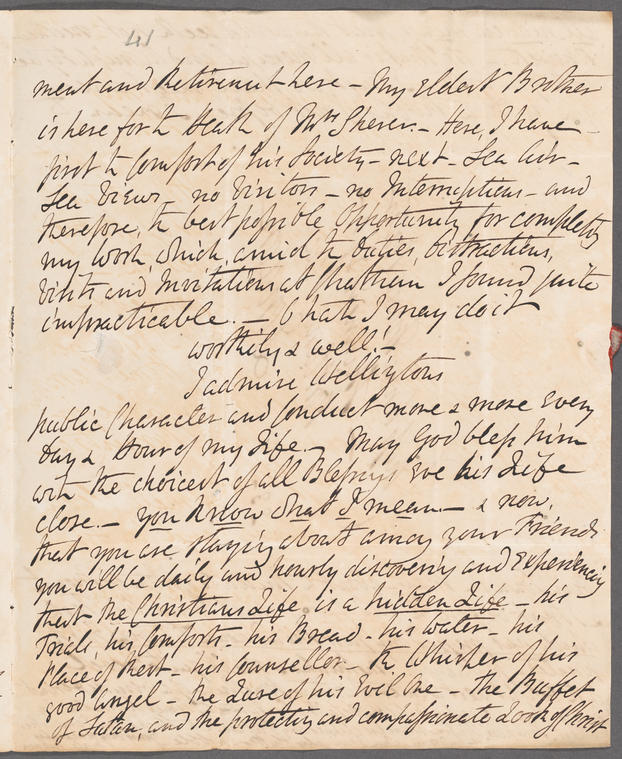 41
ment and Retirement here – My Eldest Brother
is here for th Health of Mrs Sherer. – Here, I have
first th Comfort of his Society – next – Sea Air –
Sea Views – no Visitors – no Interruptions – and
therefore, th best possible Opportunity for completg
my Work which, amid th Duties, Distractions,
Visits and Invitations at Chatham I found quite
impracticable. – O that I may do it
worthily & well! –
I admire Wellingtons
public Character and Conduct more & more Every
Day & Hour of my Life. – May God bless him
with the choicest of all Blessings Ere his Life
close. – You Know What I mean – & now,
that you are staying about among your Friends
you will be daily and hourly discovering and Experiencing
that the Christians Life is a hidden Life – his
Trials, his Comforts – his Bread – his Water – his
Place of Rest – his Counsellor – th Whisper of his
good Angel – the Lure of his Evil One – the Buffet
of Satan, and the protecting and compassionate Look of Christ